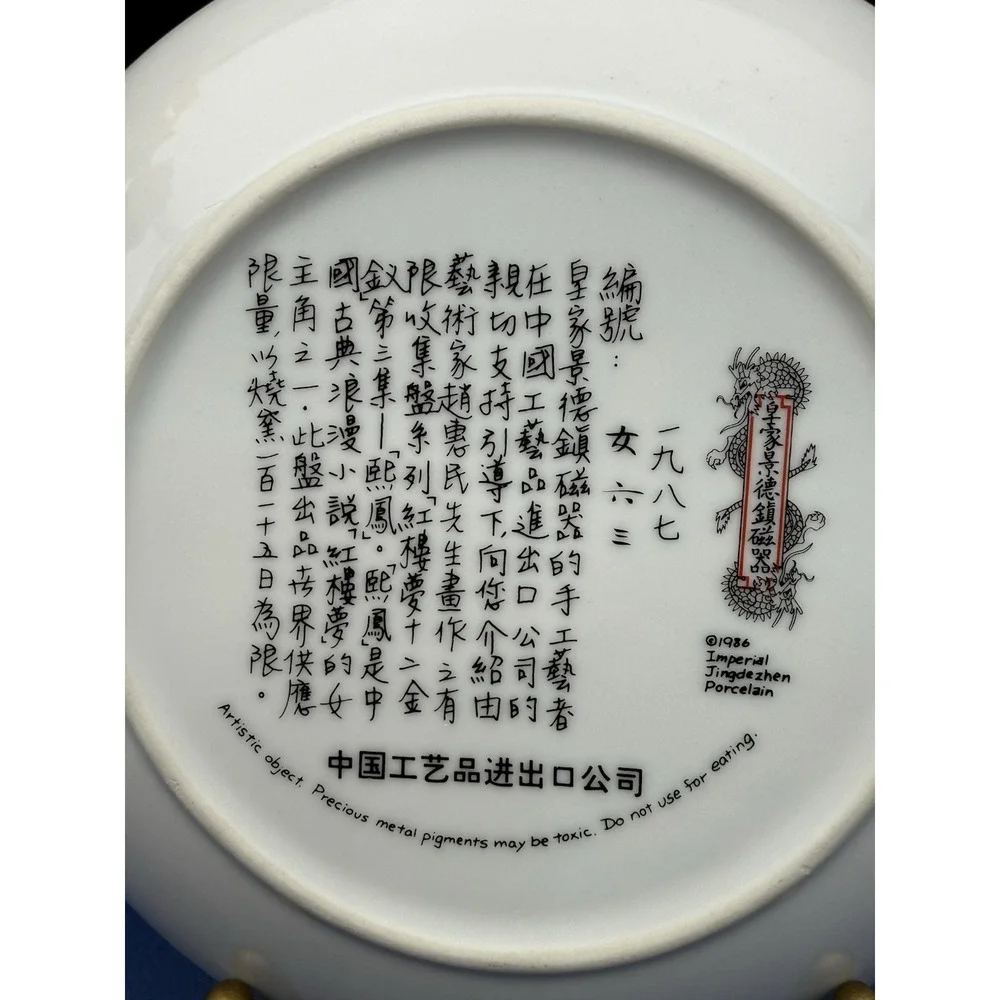 皇家景德鎮磁器
©1986
Imperial
Jingdezhen
Porcelain
一九八七
編號: 女六三
皇家景德鎮磁器的手工藝者
在中國工藝品進出口公司的
親切支持引導下,向您介紹由
藝術家趙惠民先生畫作之有
限收集盤系列「紅樓夢十二金
釵」第三集—「熙鳳」。「熙鳳」是中
國古典浪漫小說「紅樓夢」的女
主角之一.此盤出品世界供應
限量,以燒窯一百一十五日為限。
中国工艺品进出口公司
Artistic object. Precious metal pigments may be toxic. Do not use for eating.